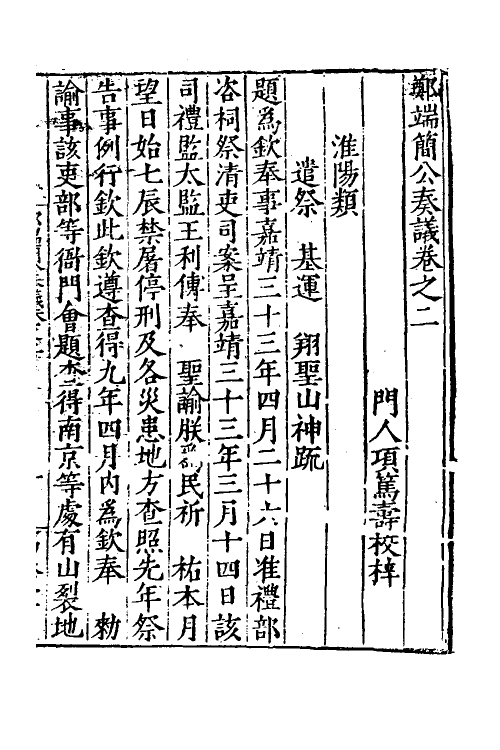 鄭端簡公奏議卷之二
門人項篤壽校梓
淮陽類
遣祭　基運　翔聖山神䟽
題為欽奉事嘉靖三十三年四月二十六日准禮部
咨祠祭清吏司案呈嘉靖三十三年三月十四日該
司禮監太監王利傳奉　聖諭朕爲民祈　祐本月
望日始七辰禁屠停刑及各災患地方查照先年祭
告事例行欽此欽遵查得九年四月內為欽奉　勑
諭事該吏部等衙門會題查得南京等處有山裂地